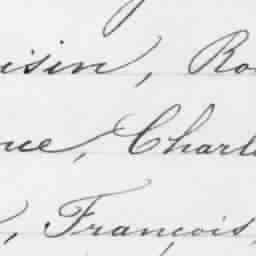 isin, Ro
ue, Charl
, François,